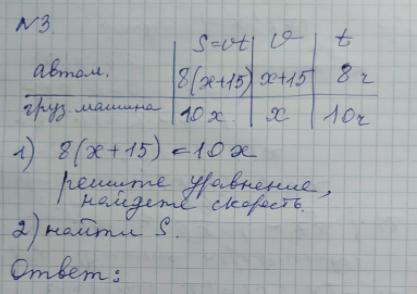 №3.
S=vt v t
автом. 8(x+15) x+15 8ч
груз. машина 10x x 10ч
1) 8(x+15)=10x
решите уравнение,
найдете скорость.
2) найти S.
Ответ: